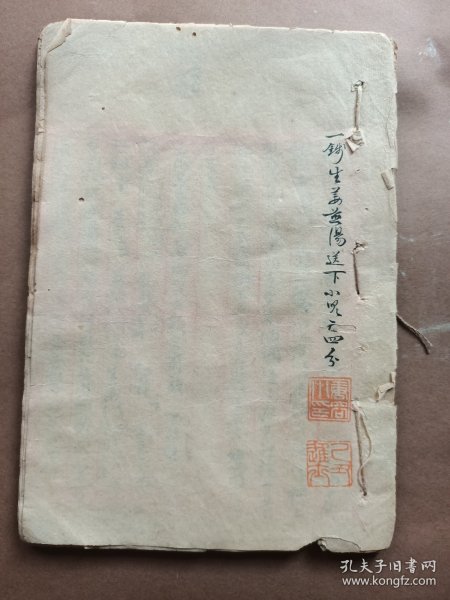 一錢生姜煎湯送下小兒三四分
孔夫子旧书网
www.kongfz.com